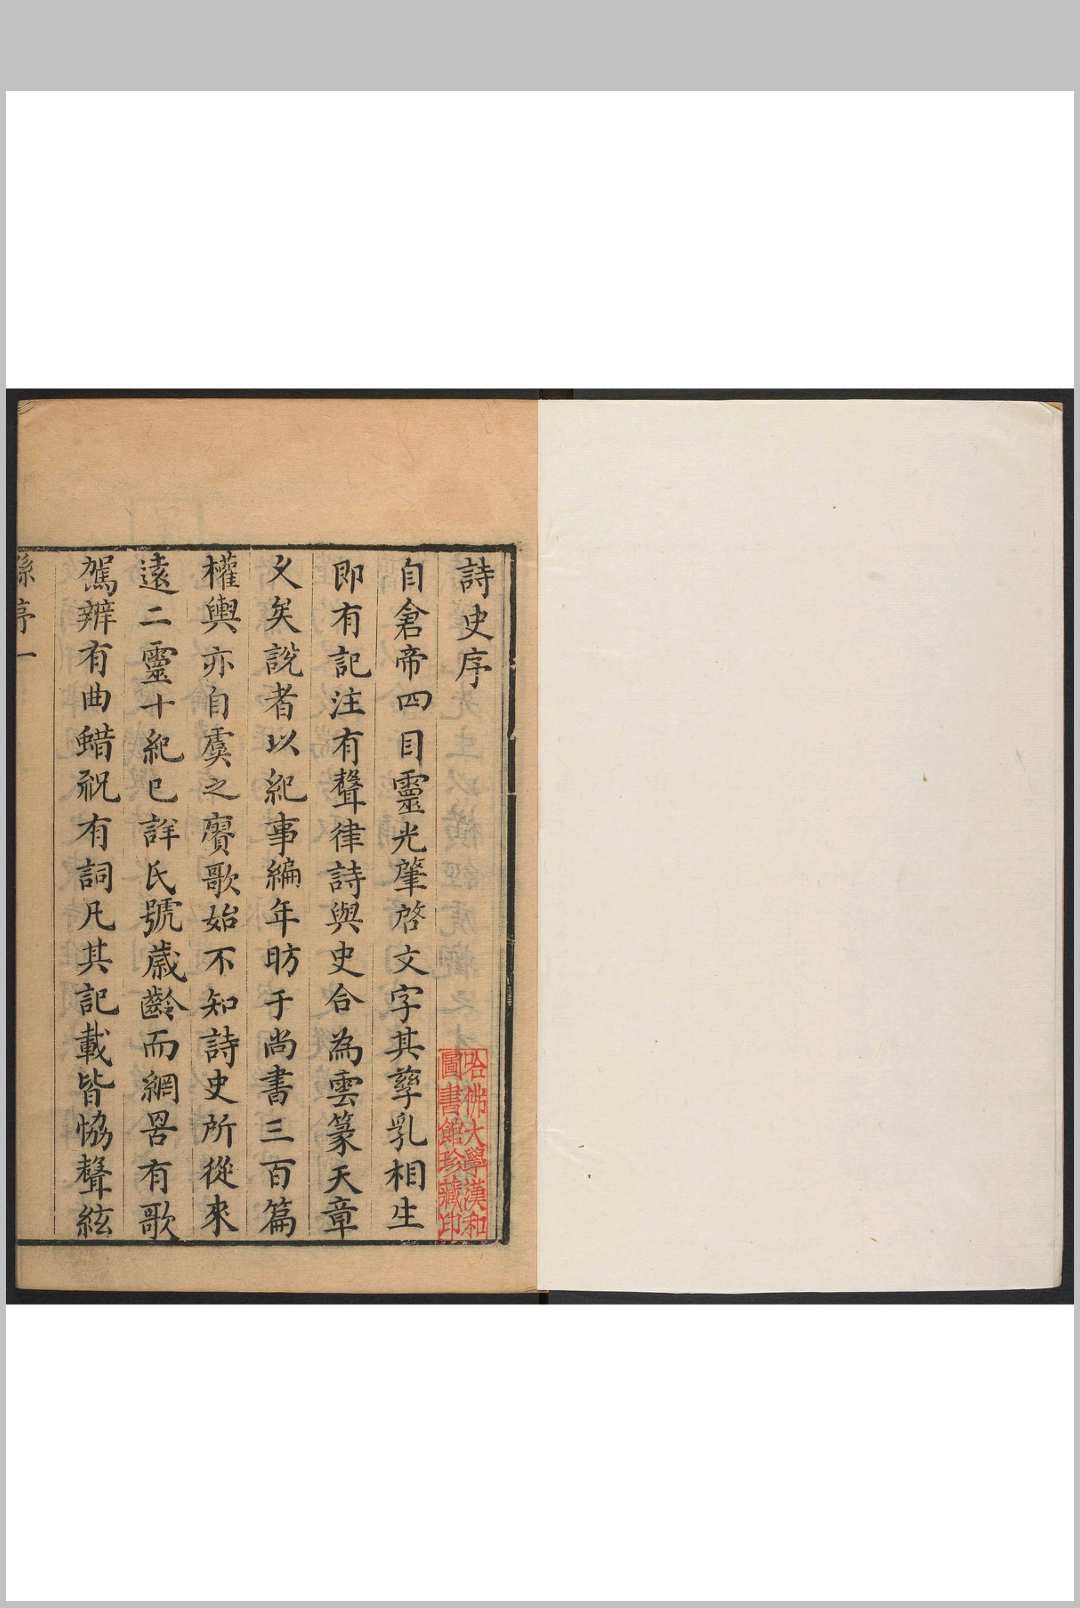 詩史序
自倉帝四目靈光肈啓文字其孳乳相生
即有記注有聲律詩與史合為雲篆天章
文矣説者以紀事編年昉于尚書三百篇
權輿亦自虞之賡歌始不知詩史所從來
遠二靈十紀已詳氏號歲齡而網罟有歌
駕辨有曲蜡祝有詞凡其記載皆恊聲絃
孫序一
哈佛大學漢和
圖書館珍藏印